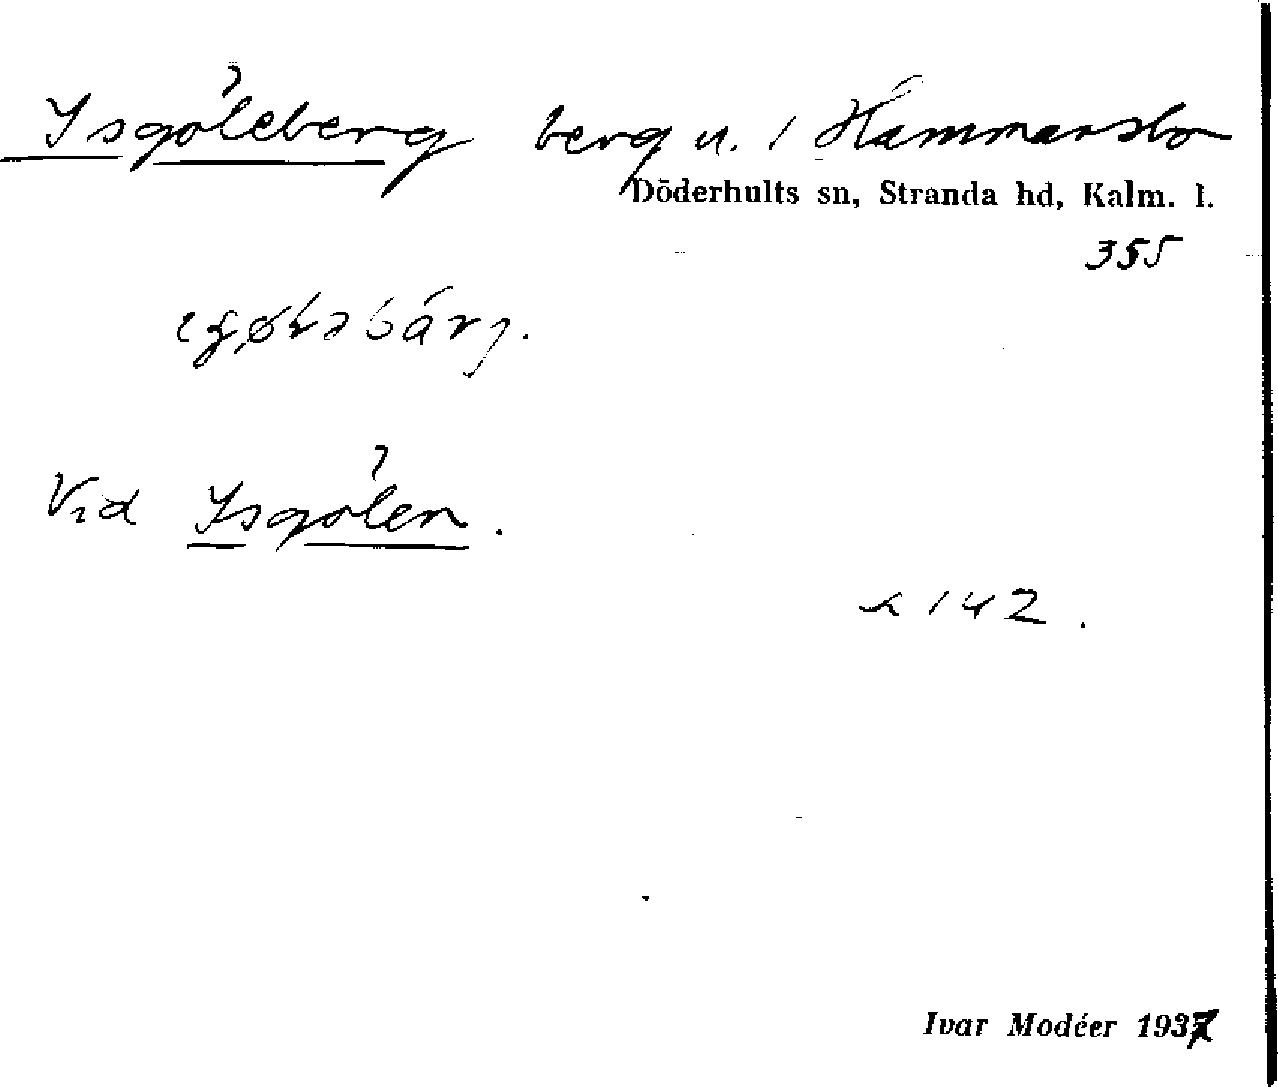 Isgöleberg berg u. 1 Hammarsbo
Döderhults sn, Stranda hd, Kalm. l.
355
Vid Isgölen.
142.
Ivar Modéer 1937